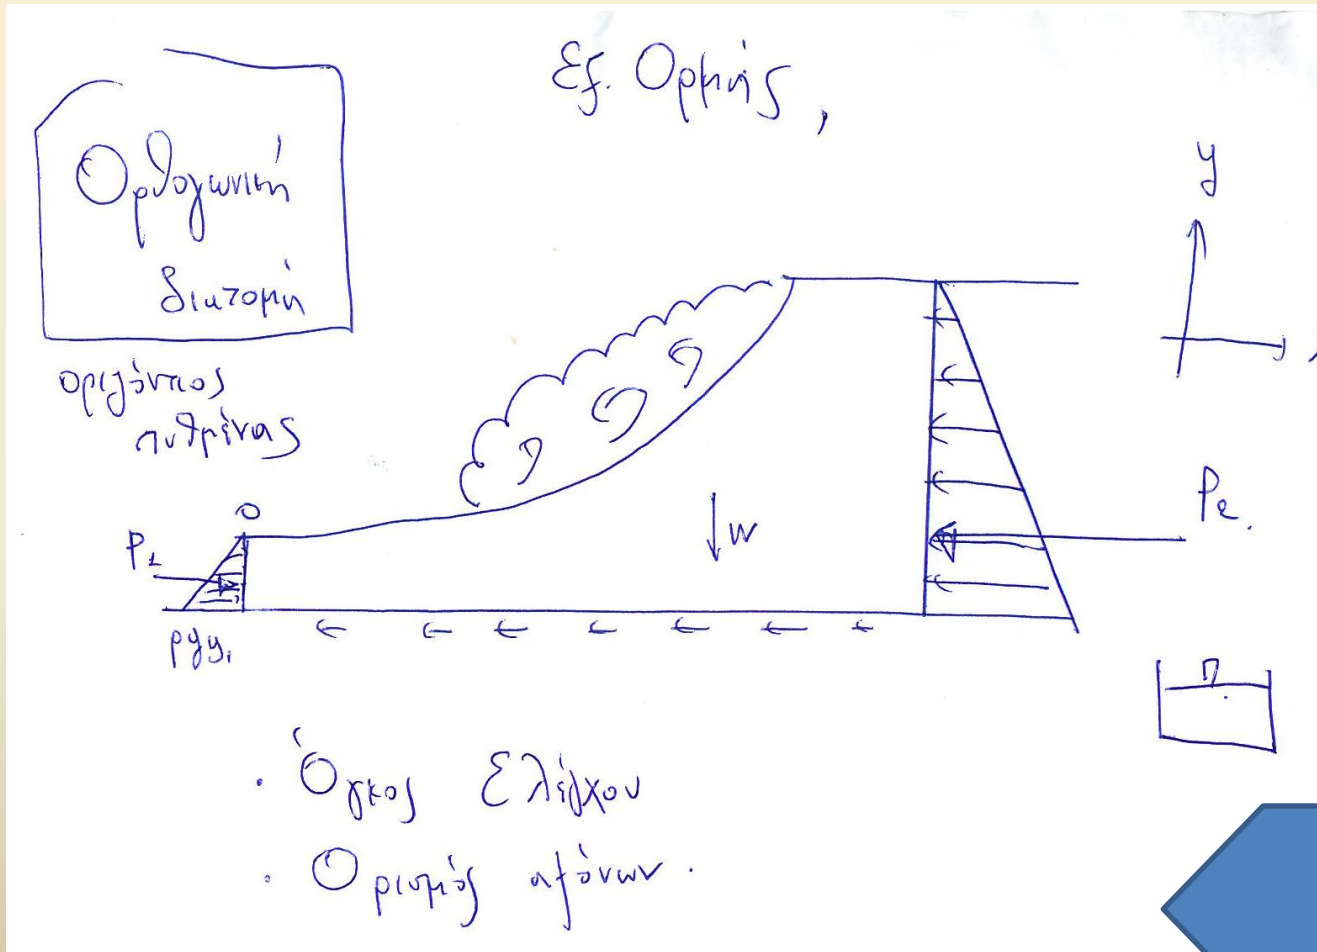 Εξ. Ορμής,
Ορθογωνική
διατομή
οριζόντιος
πυθμένας
y
O
P1
W
P2.
ρgy1
· Όγκος Ελέγχου
· Ορισμός αξόνων.